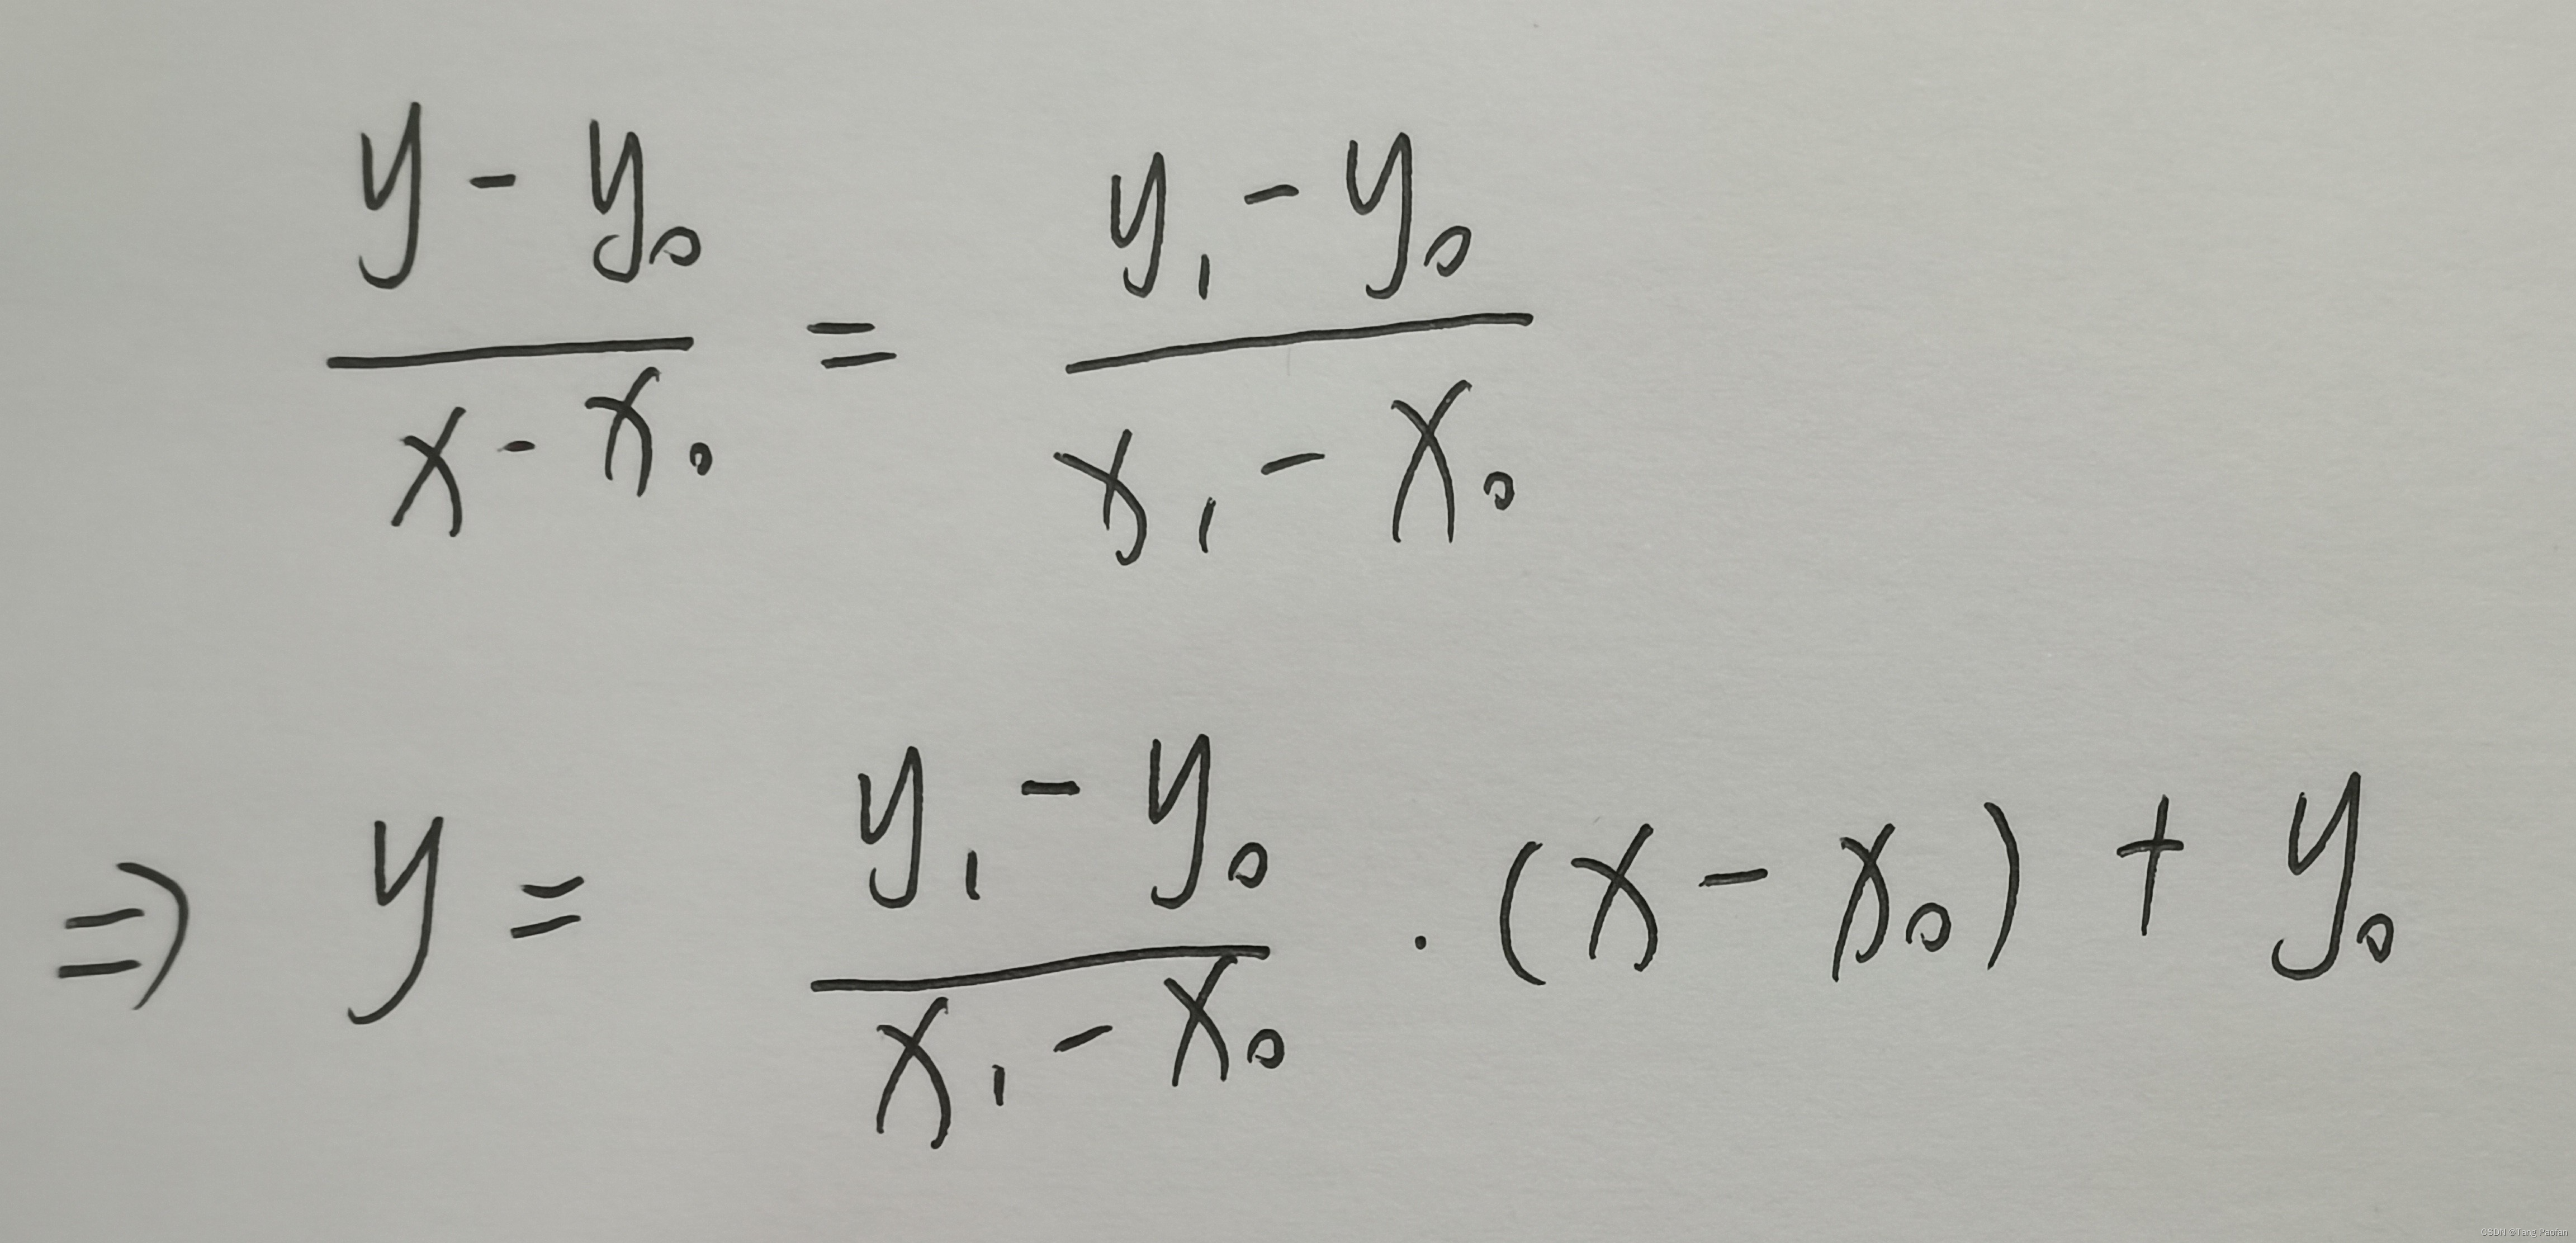 (y - y₀)/(x - x₀) = (y₁ - y₀)/(x₁ - x₀)
⇒ y = (y₁ - y₀)/(x₁ - x₀) · (x - x₀) + y₀
CSDN @Tang Paofan